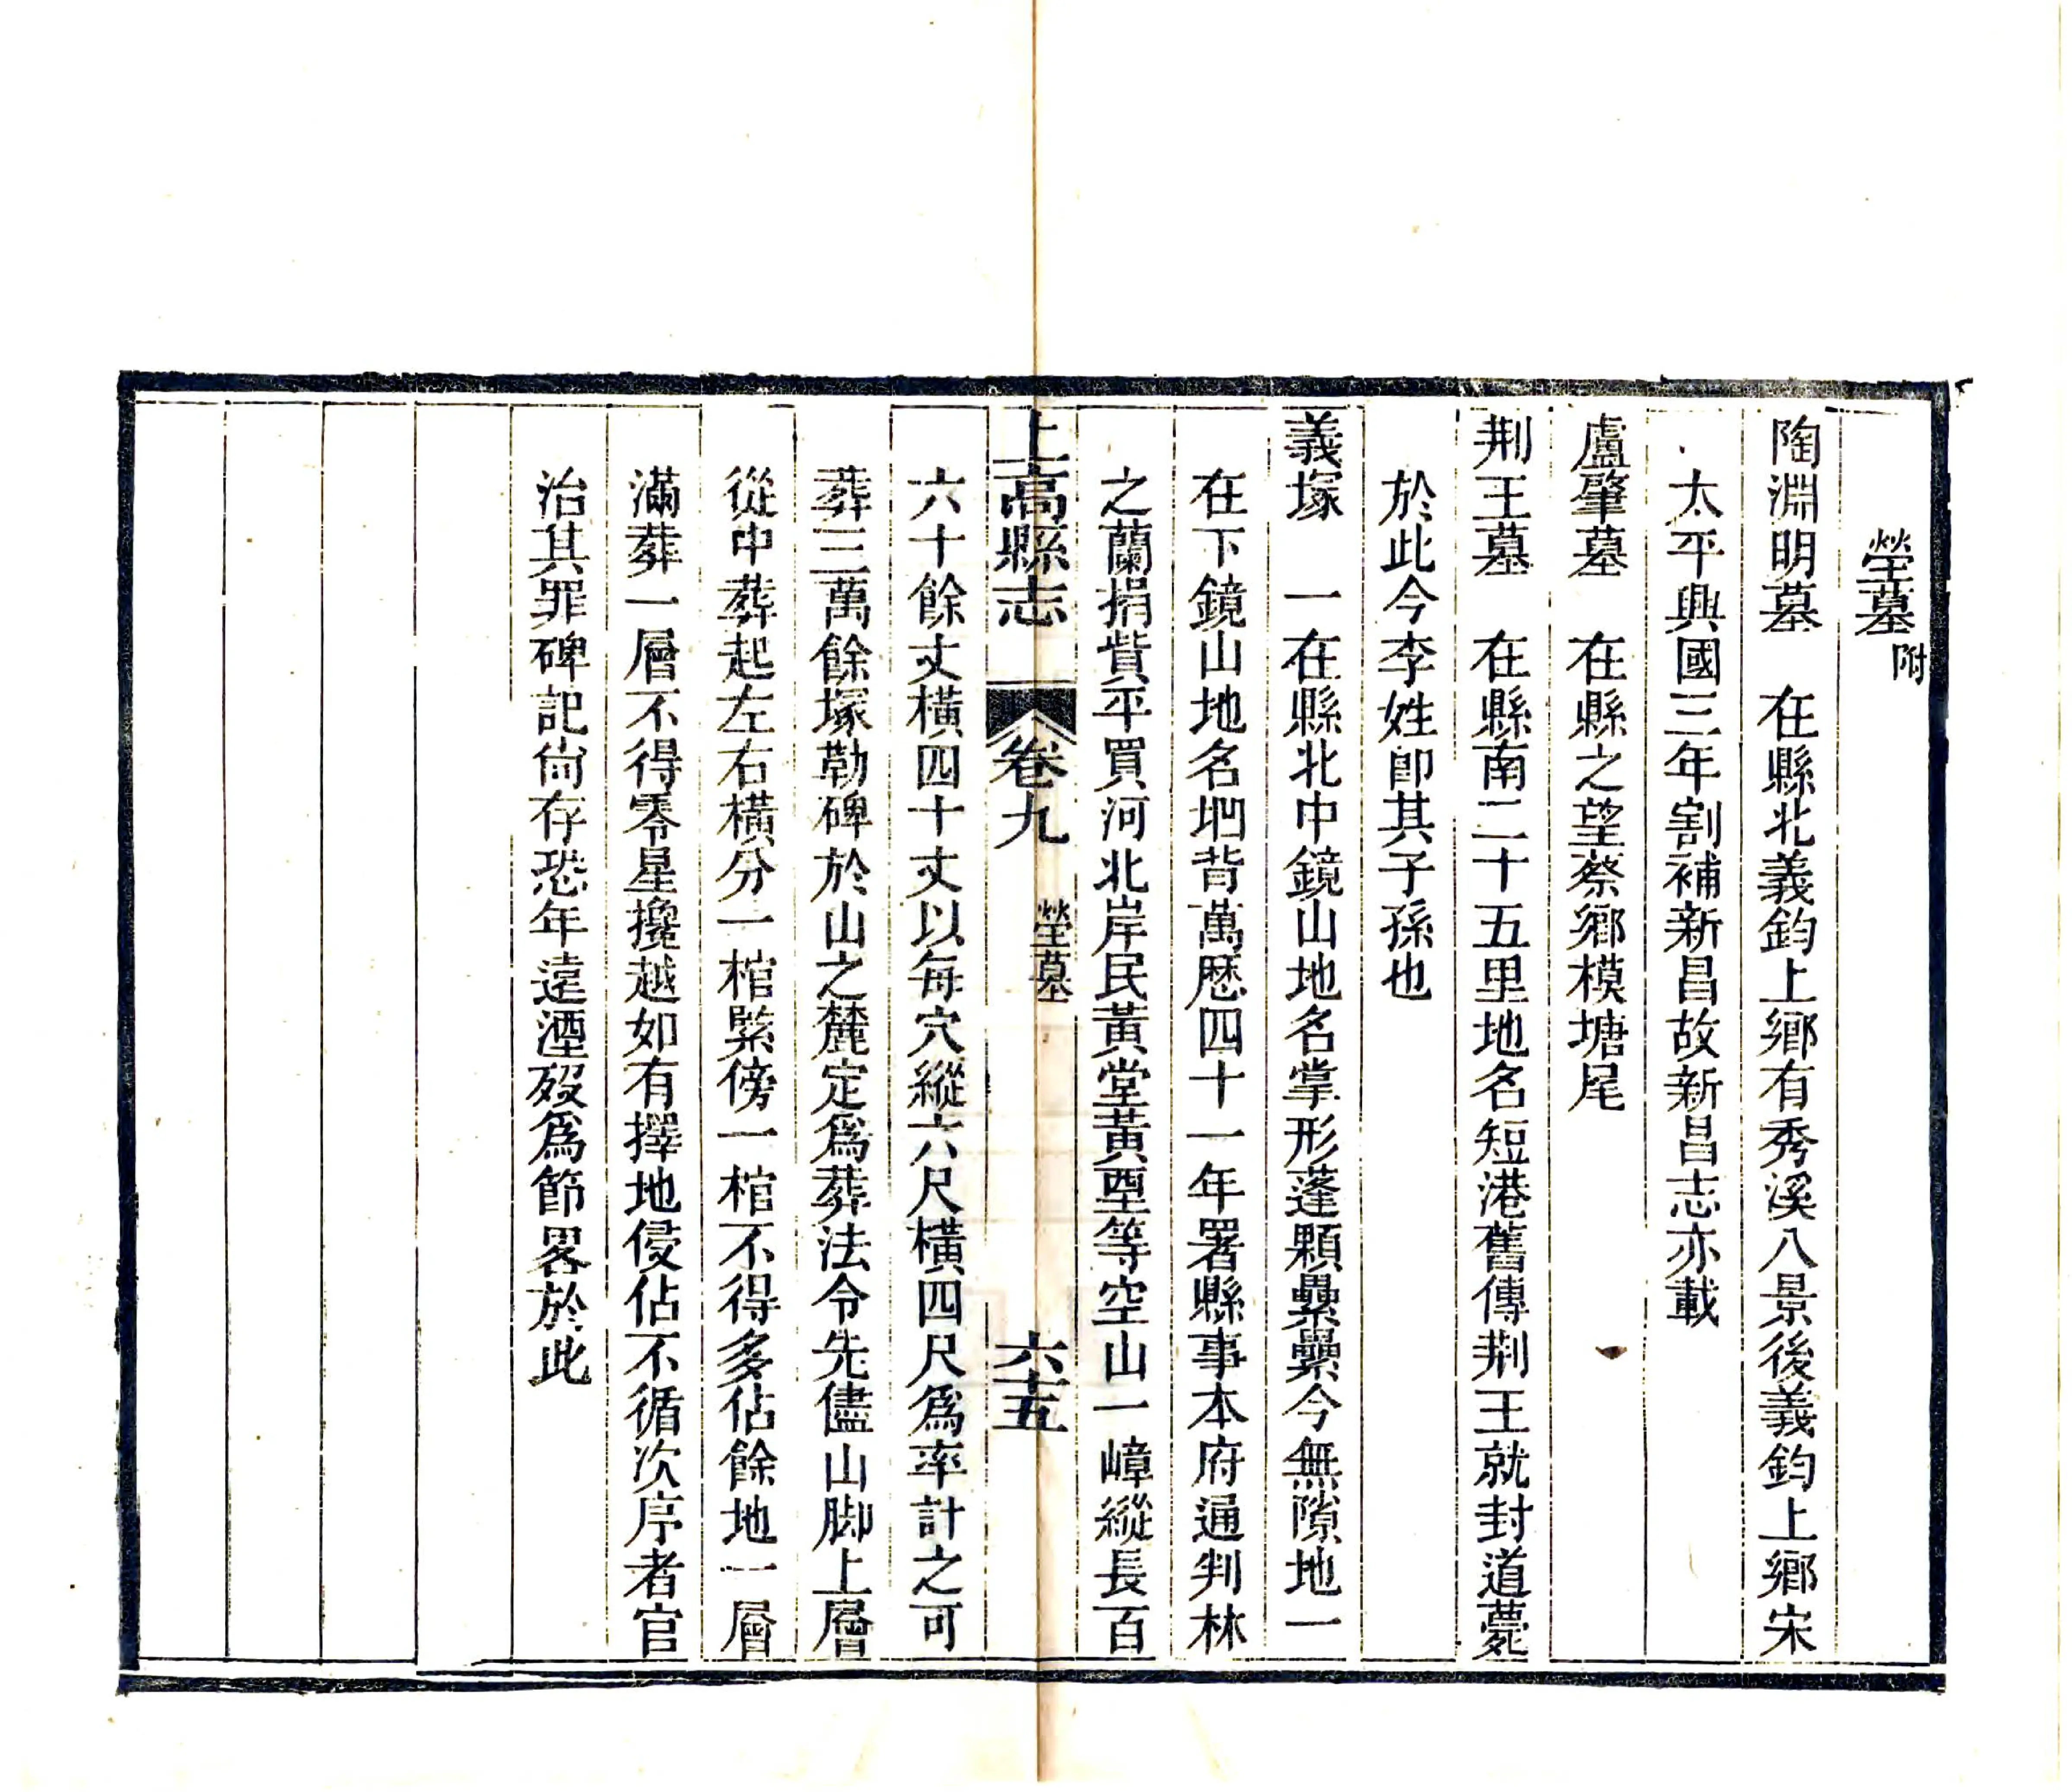 塋墓附
陶淵明墓　在縣北義鈞上鄉有秀溪八景後義鈞上鄉宋
太平興國三年割補新昌故新昌志亦載
盧肇墓　在縣之望蔡鄉模塘尾
荆王墓　在縣南二十五里地名短港舊傳荆王就封道薨
於此今李姓卽其子孫也
義塚　一在縣北中鏡山地名掌形蓬顆纍纍今無隙地一
在下鏡山地名垇背萬厯四十一年署縣事本府通判林
之蘭捐貲平買河北岸民黃堂黃堊等空山一嶂縱長百
上高縣志　卷九　塋墓　六十五
六十餘丈橫四十丈以每穴縱六尺橫四尺爲率計之可
葬三萬餘塚勒碑於山之麓定爲葬法令先儘山脚上層
從中葬起左右橫分一棺緊傍一棺不得多佔餘地一層
滿葬一層不得零星攙越如有擇地侵佔不循次序者官
治其罪碑記尙存恐年遠湮歿爲節畧於此